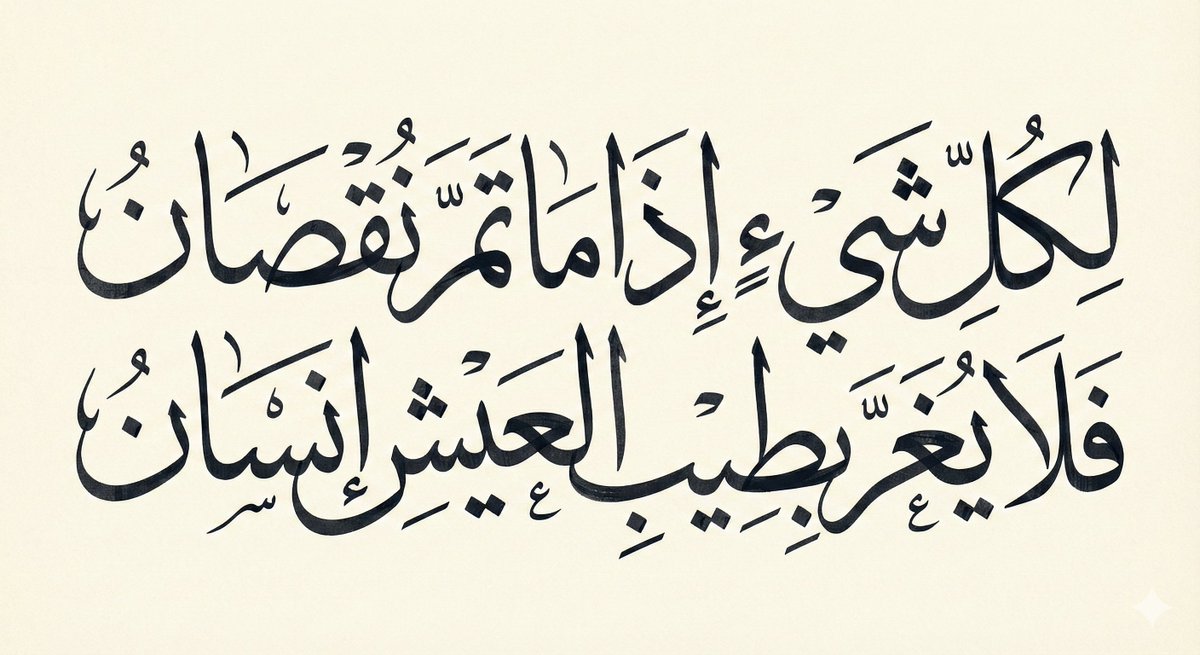 لِكُلِّ شَيْءٍ إِذَا مَا تَمَّ نُقْصَانُ
فَلَا يُغَرَّ بِطِيبِ الْعَيْشِ إِنْسَانُ